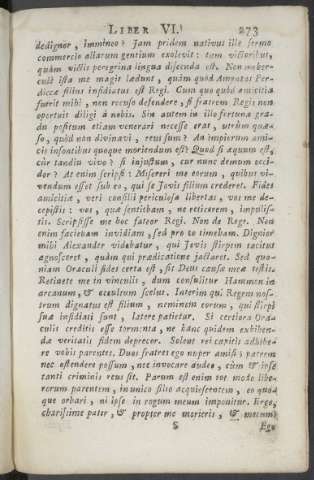 LIBER VI. 273
dedignor, Immineo? Jam pridem nativus ille sermo
commercio aliarum gentium exolevit: tam victoribus,
quàm victis peregrina lingua discenda est. Non meher-
culè ista me magis lædunt, quàm quòd Amyntas Per-
diccæ filius insidiatus est Regi. Cum quo quòd amicitia
fuerit mihi, non recuso defendere, si fratrem Regis non
oportuit diligi à nobis. Sin autem in illo fortunæ gra-
du positum etiam venerari necesse erat, utrùm quæ-
so, quòd non divinavi, reus sum? An impiorum ami-
cis insontibus quoque moriendum est? Quod si æquum est,
cùr tandiu vivo? si injustum, cur nunc demum occi-
dor? At enim scripsi: Misereri me eorum, quibus vi-
vendum esset sub eo, qui se Jovis filium crederet. Fides
amicitiæ, veri consilii periculosa libertas, vos me de-
cepistis: vos, quæ sentiebam, ne reticerem, impulis-
tis. Scripsisse me hoc fateor Regi. Non de Rege. Non
enim faciebam invidiam, sed pro eo timebam. Dignior
mihi Alexander videbatur, qui Jovis stirpem tacitus
agnosceret, quàm qui prædicatione jactaret. Sed quo-
niam Oraculi fides certa est, sit Deus causæ meæ testis.
Retinete me in vinculis, dum consulitur Hammon in
arcanum, & occultum scelus. Interim qui Regem nos-
trum dignatus est filium, neminem eorum, qui stirpi
suæ insidiati sunt, latere patietur. Si certiora Ora-
culis creditis esse tormenta, ne hanc quidem exhiben-
dæ veritatis fidem deprecor. Solent rei capitis adhibe-
re vobis parentes. Duos fratres ego nuper amisi: patrem
nec ostendere possum, nec invocare audeo, cùm & ipse
tanti criminis reus sit. Parum est enim tot modo libe-
rorum parentem, in unico filio acquiescentem, eo quo-
que orbari, ni ipse in rogum meum imponitur. Ergo,
charissime pater, & propter me morieris, & mecum:
S Ego